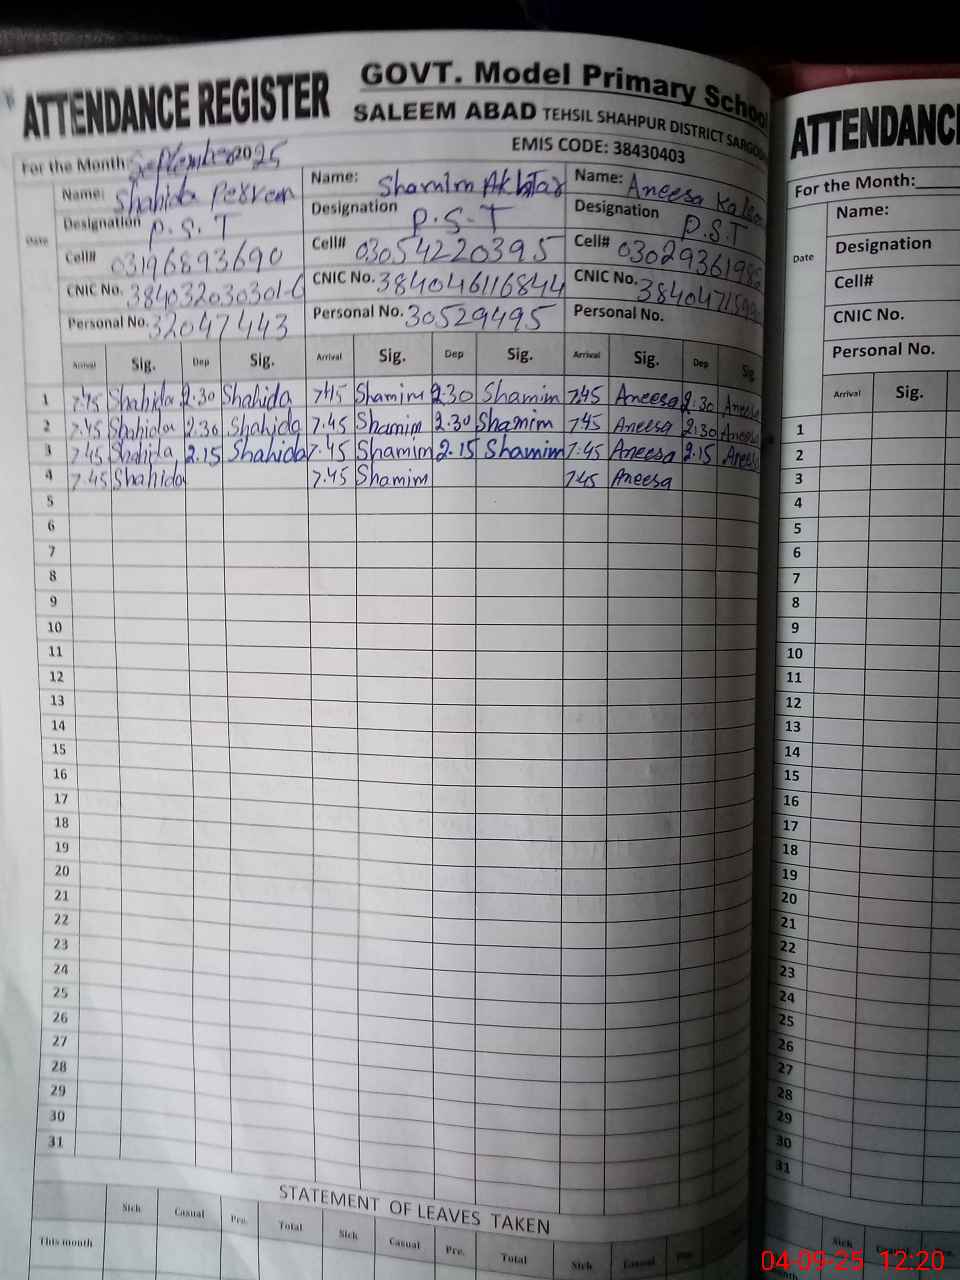 ATTENDANCE REGISTER GOVT. Model Primary School
SALEEM ABAD TEHSIL SHAHPUR DISTRICT
EMIS CODE: 38430403
For the Month: September 2025
Name: Shahida Perveen Name: Shamim Akhtar Name: Aneesa
Designation P.S.T Designation P.S.T Designation P.S.T
Cell# 03196893690 Cell# 03054220395 Cell#
CNIC No. CNIC No. 384046116844 CNIC No.
Personal No. 32047443 Personal No. 30529495 Personal No.
Date Arrival Sig. Dep Sig. Arrival Sig. Dep Sig. Arrival Sig. Dep Sig.
1 7.45 Shahida 2.30 Shahida 7.45 Shamim 2.30 Shamim 7.45 Aneesa 2.30 Aneesa
2 7.45 Shahida 2.30 Shahida 7.45 Shamim 2.30 Shamim 7.45 Aneesa 2.30 Aneesa
3 7.45 Shahida 2.15 Shahida 7.45 Shamim 2.15 Shamim 7.45 Aneesa 2.15 Aneesa
4 7.45 Shahida 7.45 Shamim 7.45 Aneesa
5
6
7
8
9
10
11
12
13
14
15
16
17
18
19
20
21
22
23
24
25
26
27
28
29
30
31
STATEMENT OF LEAVES TAKEN
Sick Casual Pre. Total Sick Casual Pre. Total Sick Casual
This month
ATTENDANC
For the Month:
Name:
Date Designation
Cell#
CNIC No.
Personal No.
Arrival Sig.
1
2
3
4
5
6
7
8
9
10
11
12
13
14
15
16
17
18
19
20
21
22
23
24
25
26
27
28
29
30
31
Sick
04-09-25 12:20